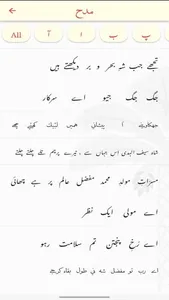 مدح
All آ ا ب پ
تجھے جب شہ بحر و بر دیکھتے ہیں
جگ جگ جیو اے سرکار
جھکاویئے آ پیشانی ہمیں لبیک کہتے چلے
شاہ سیف الہدی اس جہاں سے ، تیرے پرچم تلے چلتے چلتے
مسرّات مولد محمد مفضل عالم پر ہے چھائی
اے مولی ایک نظر
اے رخ پنجتن تم سلامت رہو
اے رب تو مفضل شہ نی طول بقاء کریجے